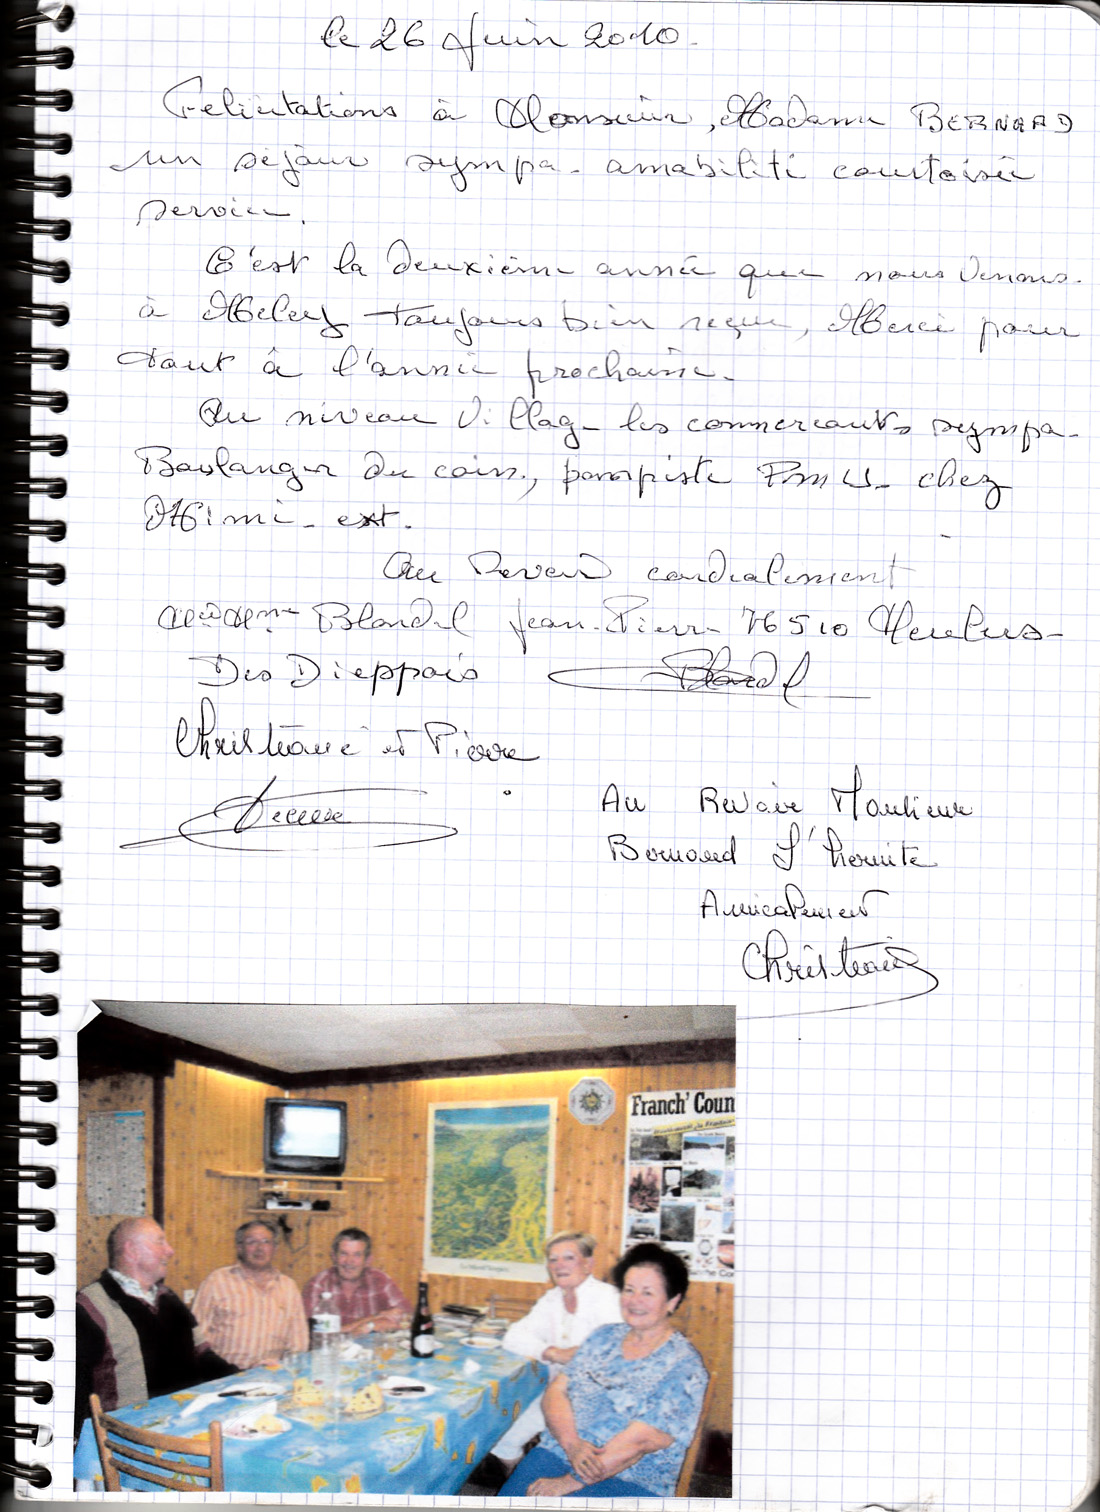 le 26 Juin 2010.
Felicitations à Monsieur, Madame BERNARD
un séjour sympa - amabilité courtoisie
service.
C'est la deuxième année que nous venons.
à toujours bien reçu, Merci pour
tout à l'année prochaine.
Au niveau Village les commercants sympa -
Boulanger du coin, pompiste PMU - chez
Mimi - ext.
Au Revoir cordialement
Blondel Jean-Pierre 76510 Meulers -
Des Dieppois Blondel
Christiane et Pierre
Au Revoire Monsieur
Bernard L'hermite
Amicalement
Christiane
Franch' Coun